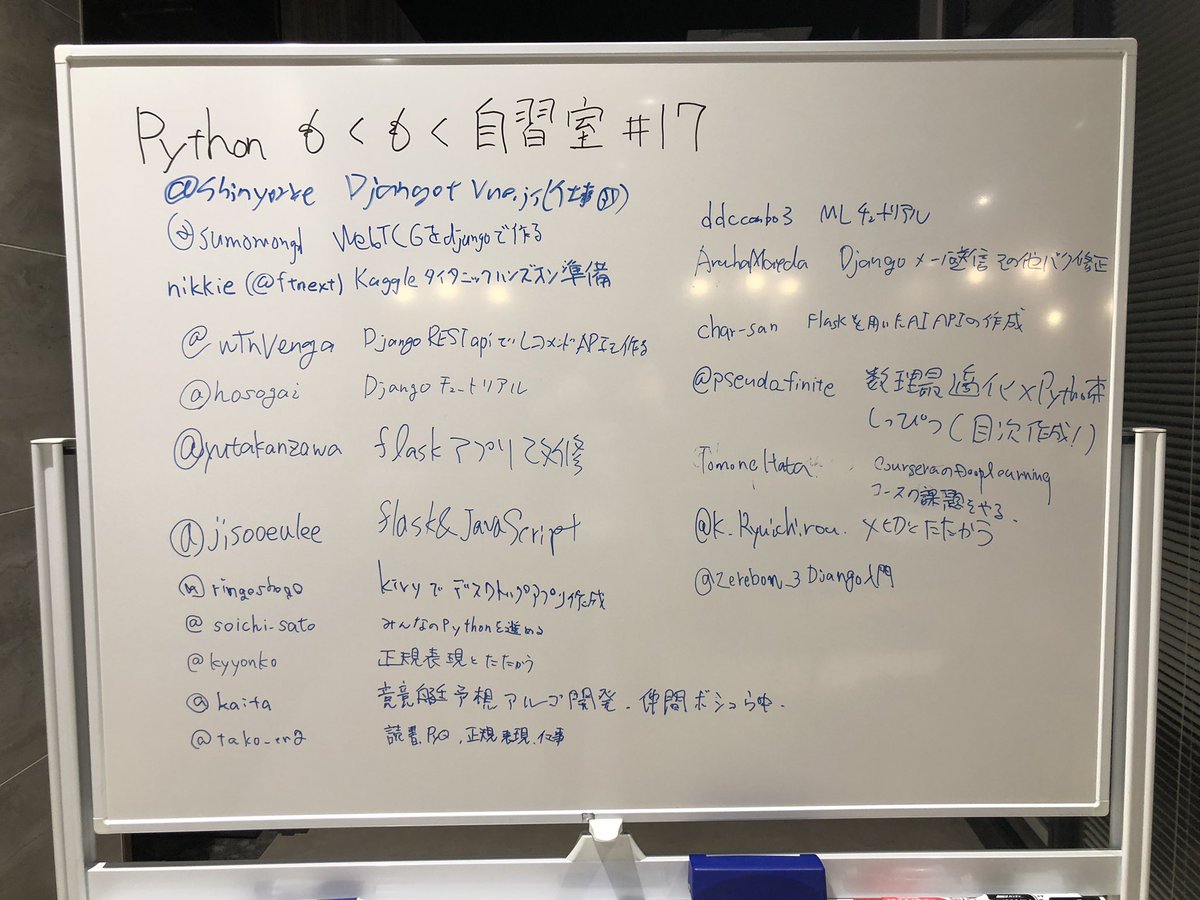 Python もくもく 自習室 #17
@shinyorke Django + Vue.js(仕事)
@sumomongd WebTCGをdjangoで作る
nikkie (@ftnext) Kaggle タイタニックハンズオン準備
@nTnVenga Django REST apiでレコメンドAPIを作る
@hosogai Django チュートリアル
@yutakanzawa flask アプリ 改修
@jisooeulee flask & JavaScript
@ringoshogo kivyでデスクトップアプリ作成
@soichi-sato みんなのPythonを進める
@kyyonko 正規表現とたたかう
@kaita 競艇予想アルゴ開発.仲間ボシュう中.
@tako_ 読書,PyQ,正規表現,仕事
ddcconbo3 MLチュートリアル
Django メール送信その他バグ修正
char-san Flaskを用いたAI APIの作成
@pseudofinite 数理最適化×Python本
しっぴつ(目次作成!)
Tomone Hata CourseraのDeep learning
コースの課題をやる.
@k.Ryuichirou. とたたかう
@zerebom_3 Django入門